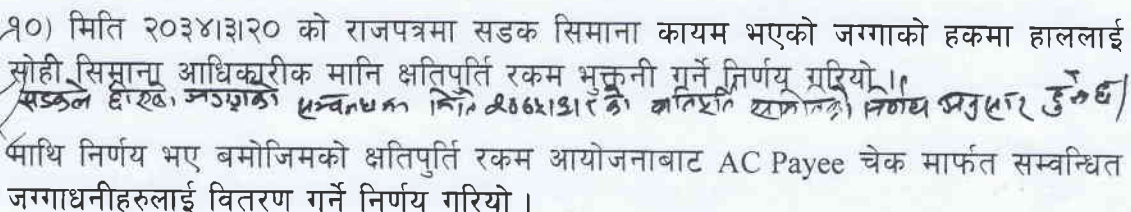 १०) मिति २०३४।३।२० को राजपत्रमा सडक सिमाना कायम भएको जग्गाको हकमा हाललाई
सोही सिमाना आधिकारीक मानि क्षतिपुर्ति रकम भुक्तनी गर्ने निर्णय गरियो ।
सडकले जग्गाको सम्बन्धमा मिति क्षतिपूर्ति निर्णय अनुसार हुनेछ।
माथि निर्णय भए बमोजिमको क्षतिपुर्ति रकम आयोजनाबाट AC Payee चेक मार्फत सम्वन्धित
जग्गाधनीहरुलाई वितरण गर्ने निर्णय गरियो ।